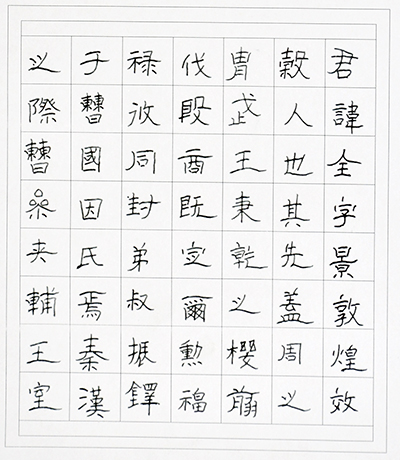 君諱全字景敦煌效
穀人也其先蓋周之
胄武王秉乾之櫻翦
伐殷商既定爾勲福
禄攸同封弟叔振鐸
于曹國因氏焉秦漢
之際曹參夾輔王室